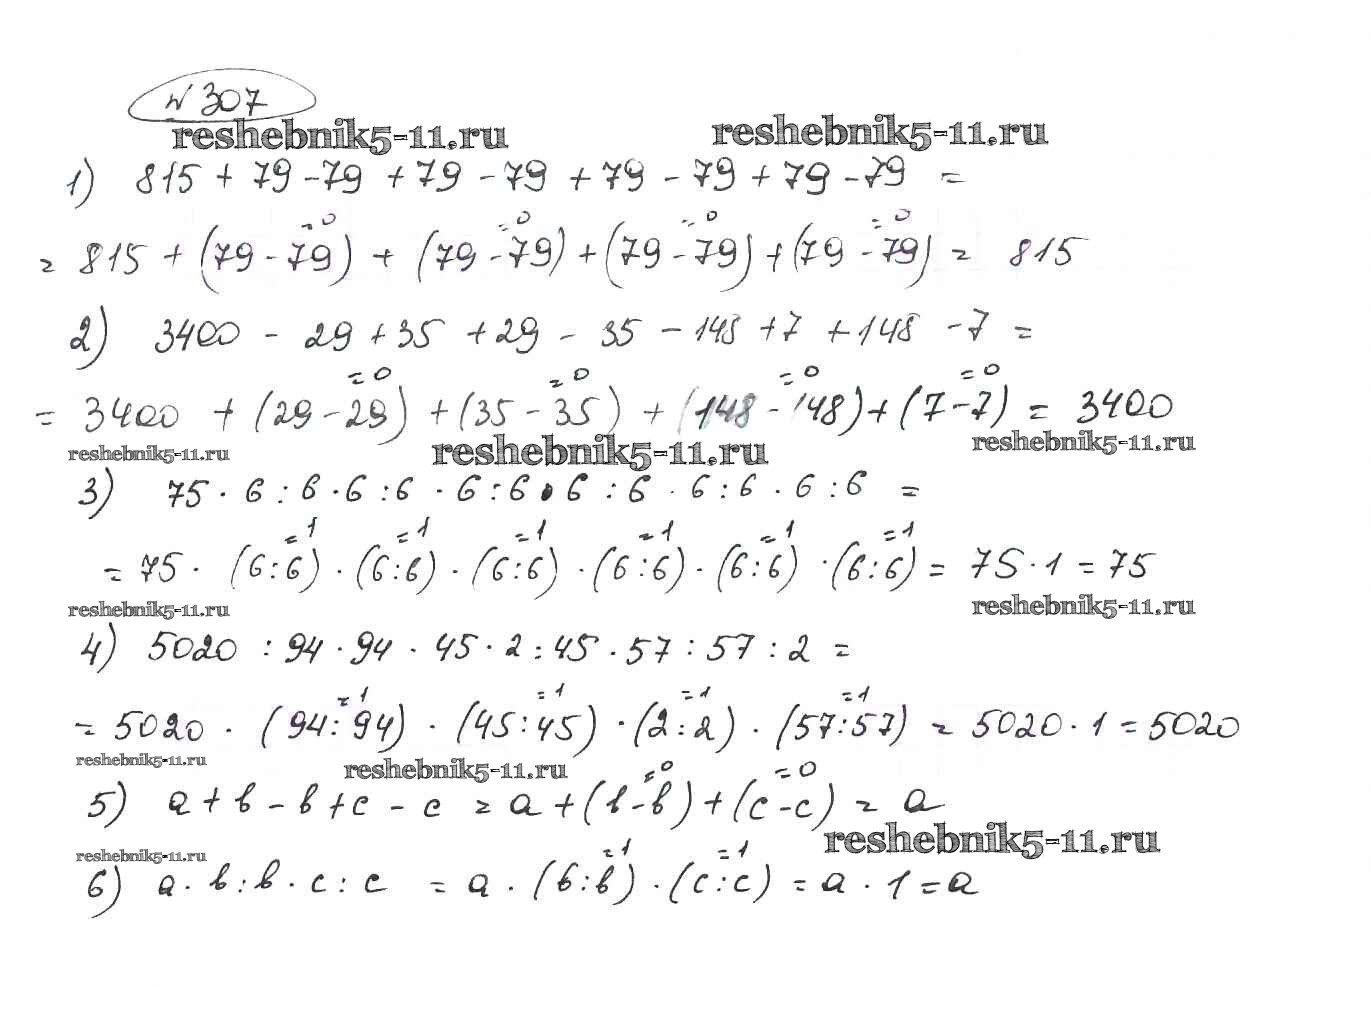 № 307
reshebnik5-11.ru reshebnik5-11.ru
1) 815 + 79 - 79 + 79 - 79 + 79 - 79 + 79 - 79 =
=0 =0 =0 =0
= 815 + (79 - 79) + (79 - 79) + (79 - 79) + (79 - 79) = 815
2) 3400 - 29 + 35 + 29 - 35 - 148 + 7 + 148 - 7 =
=0 =0 =0 =0
= 3400 + (29 - 29) + (35 - 35) + (148 - 148) + (7 - 7) = 3400
reshebnik5-11.ru reshebnik5-11.ru reshebnik5-11.ru
3) 75 · 6 : 6 · 6 : 6 · 6 : 6 · 6 : 6 · 6 : 6 · 6 : 6 =
=1 =1 =1 =1 =1 =1
= 75 · (6:6) · (6:6) · (6:6) · (6:6) · (6:6) · (6:6) = 75 · 1 = 75
reshebnik5-11.ru reshebnik5-11.ru
4) 5020 : 94 · 94 · 45 · 2 : 45 · 57 : 57 : 2 =
=1 =1 =1 =1
= 5020 · (94:94) · (45:45) · (2:2) · (57:57) = 5020 · 1 = 5020
reshebnik5-11.ru reshebnik5-11.ru
=0 =0
5) a + b - b + c - c = a + (b - b) + (c - c) = a
reshebnik5-11.ru
reshebnik5-11.ru
=1 =1
6) a · b : b · c : c = a · (b:b) · (c:c) = a · 1 = a